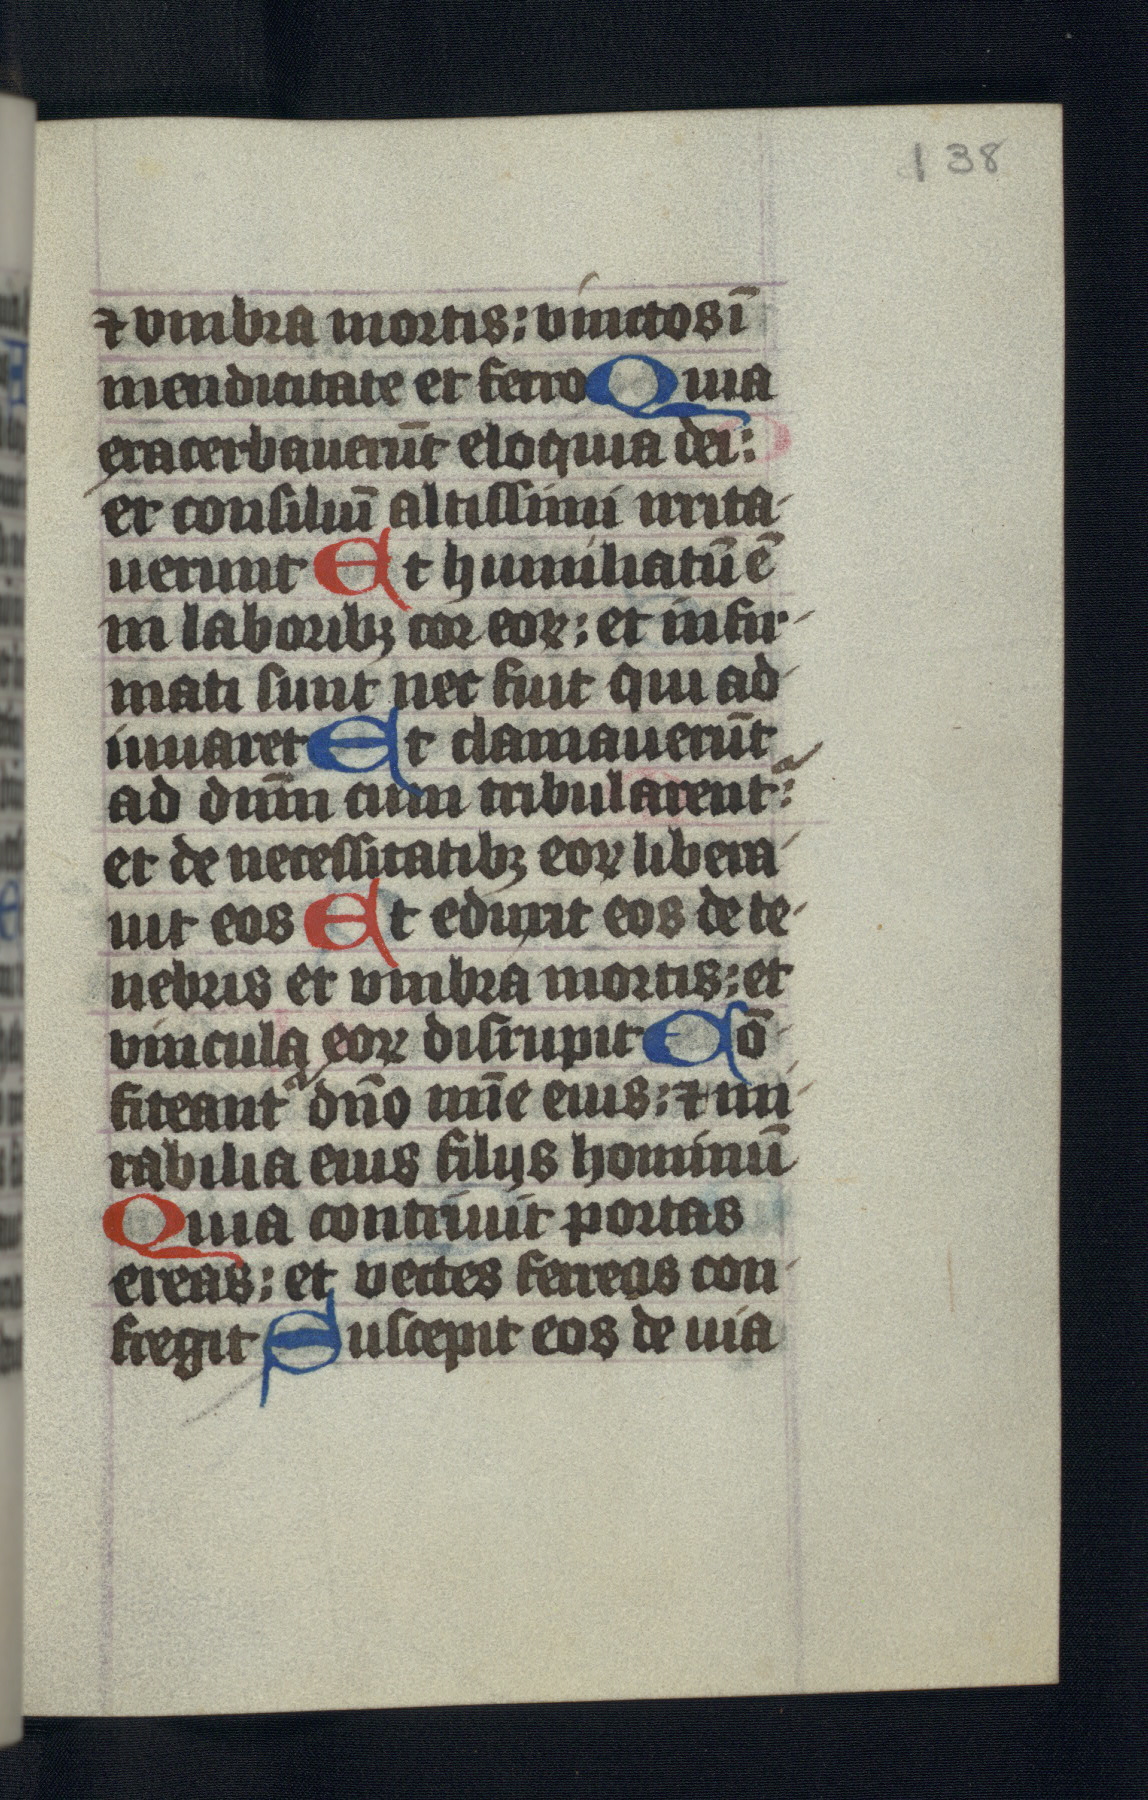 138
⁊ vmbra mortis: vinctos ī
mendititate et ferro Quia
exacerbauerūt eloquia dei:
et consiliū altissimi irrita-
uerunt Et humiliatū ē
in laboribꝫ cor eoꝝ: et infir-
mati sunt nec fuit qui ad-
iuuaret Et clamauerūt
ad dnm̄ cum tribularentᷣ:
et de necessitatibꝫ eoꝝ libera-
uit eos Et eduxit eos de te-
nebris et vmbra mortis: et
vincula eoꝝ disrupit Cō-
fiteantᷣ dn̄o mīe eius: ⁊ mi-
rabilia eius filijs hominū
Quia contriuit portas
ereas: et vectes ferreas con-
fregit Suscepit eos de uia